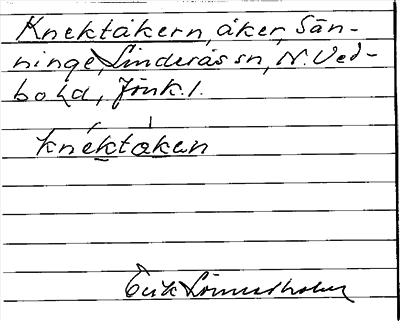 Knektåkern, åker, Sän-
ninge, Linderås sn, N. Ved-
bo hd, Jönk. l.
knéktàken
Erik Lönnerholm